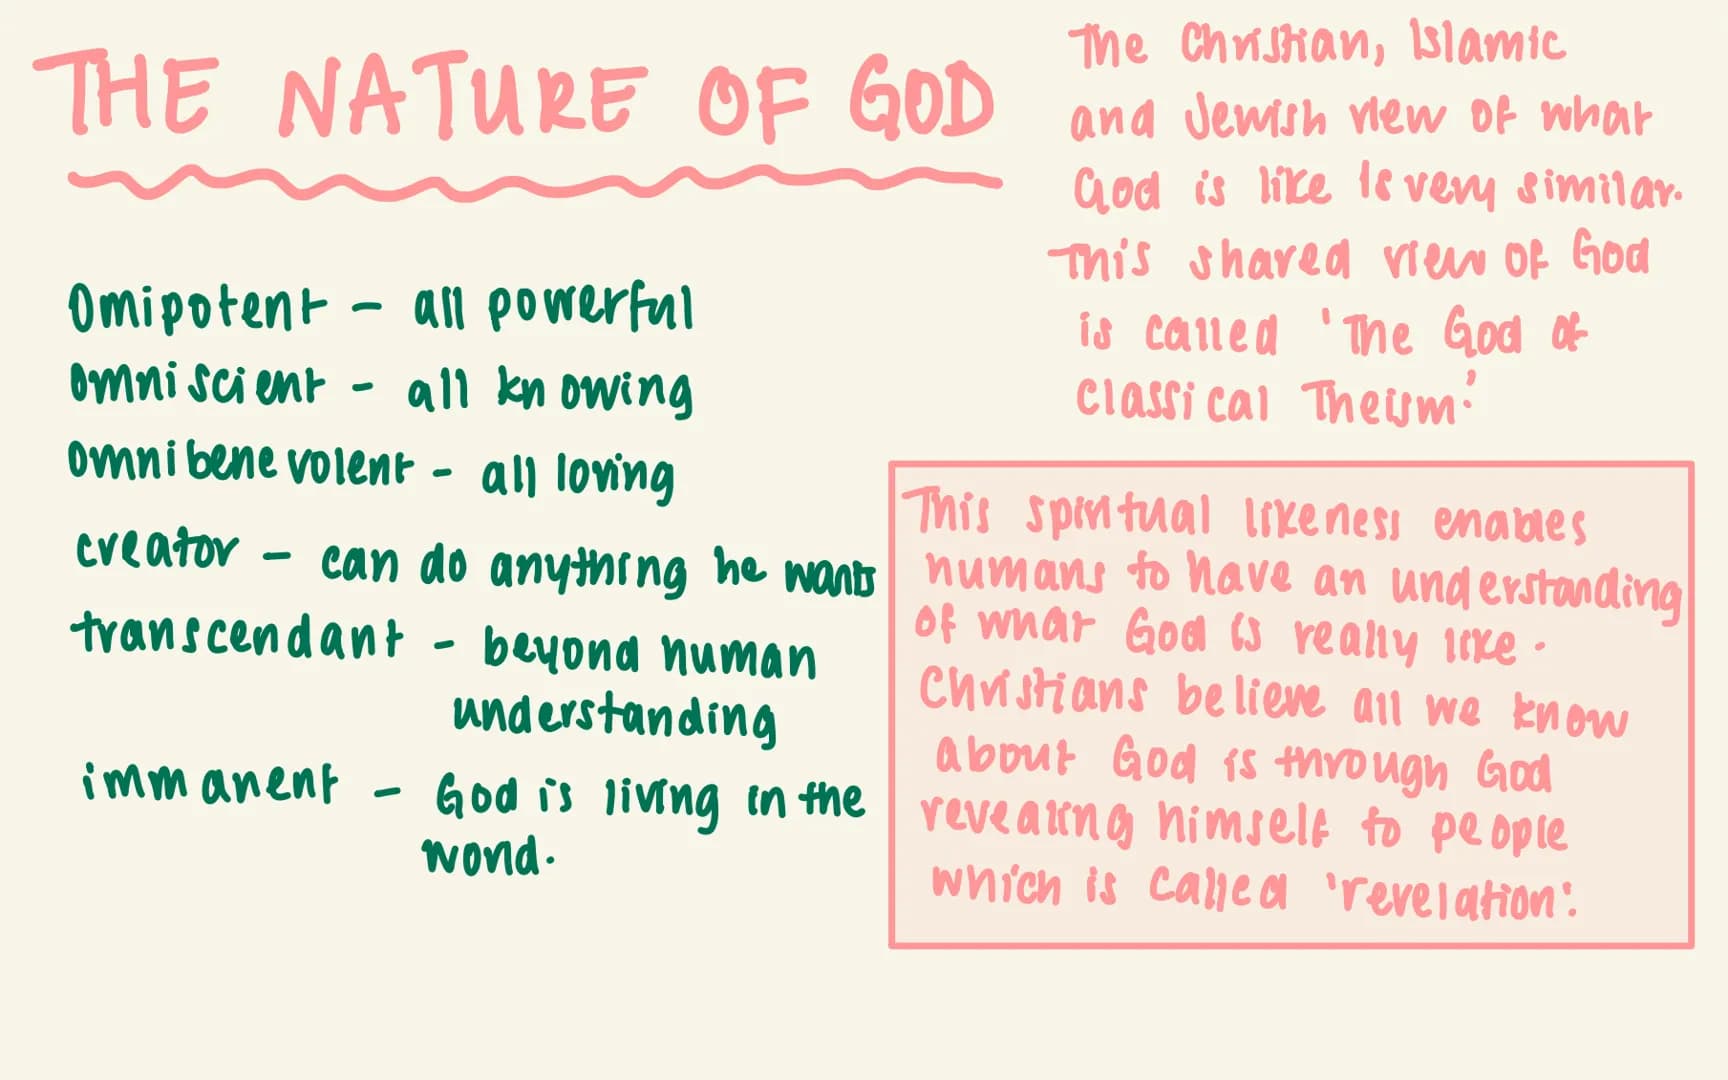 THE NATURE OF GOD
Omipotent - all powerful
omniscient - all knowing
omnibenevolent - all loving
creator - can do anything he wants
transcendant - beyond human
understanding
immanent - God is living in the
world.
The Christian, Islamic
and Jewish view of what
God is like is very similar.
This shared view of God
is called 'The God of
Classical Theism.'
This spiritual likeness enables
humans to have an understanding
of what God is really like.
Christians believe all we know
about God is through God
revealing himself to people
which is called 'revelation'.